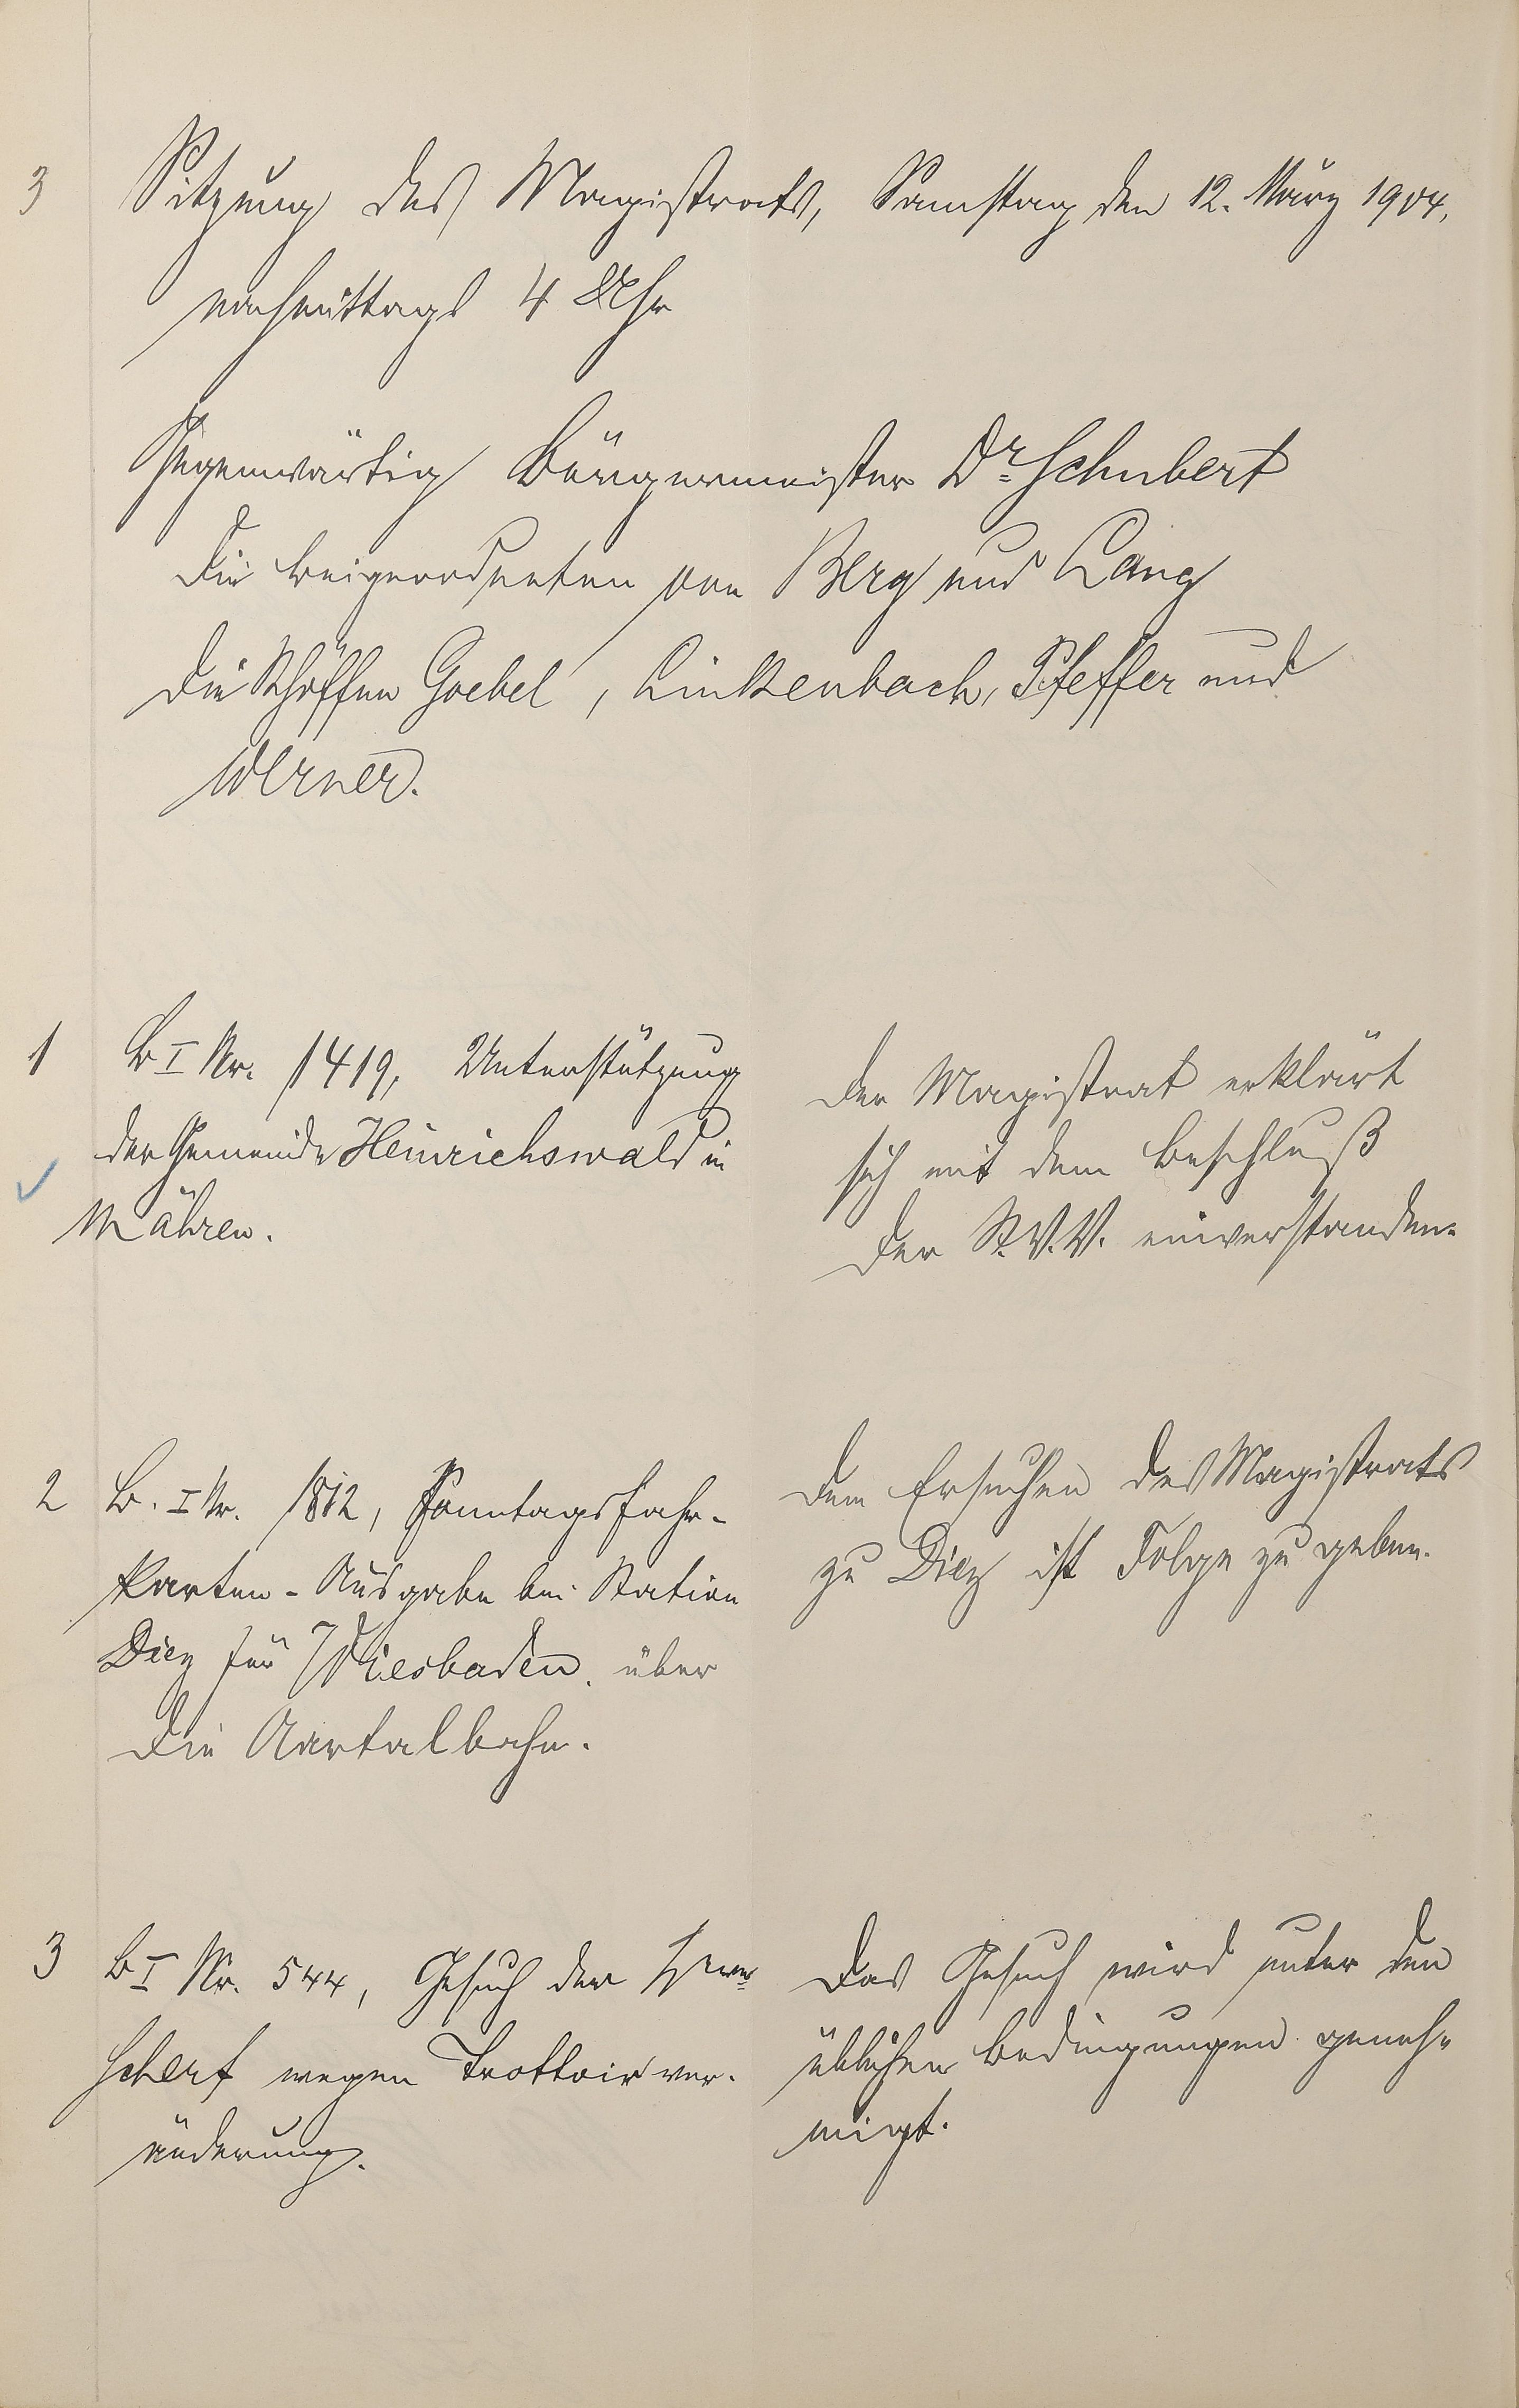 3
Sitzung des Magistrats, Samstag den 12. März 1904,
nachmittags 4 Uhr
Gegenwärtig Bürgermeister Dr Schubert
Die Beigeordneten von Berg und Lang
Die Schöffen Goebel, Linkenbach, Pfeffer und
Werner.
1
B I Nr. 1419, Unterstützung
der Gemeinde Heinrichswald in
Mähren.
Der Magistrat erklärt
sich mit dem Beschluß
der St.V.V. einverstanden.
2
B. I Nr. 1812, Sonntagsfahr-
karten-Ausgabe bei Station
Diez für Wiesbaden über
die Aartalbahn.
Dem Ersuchen des Magistrats
zu Diez ist Folge zu geben.
3
B I Nr. 544, Gesuch der
Scherf wegen Trottoirver-
änderung.
Das Gesuch wird unter den
üblichen Bedingungen geneh-
migt.